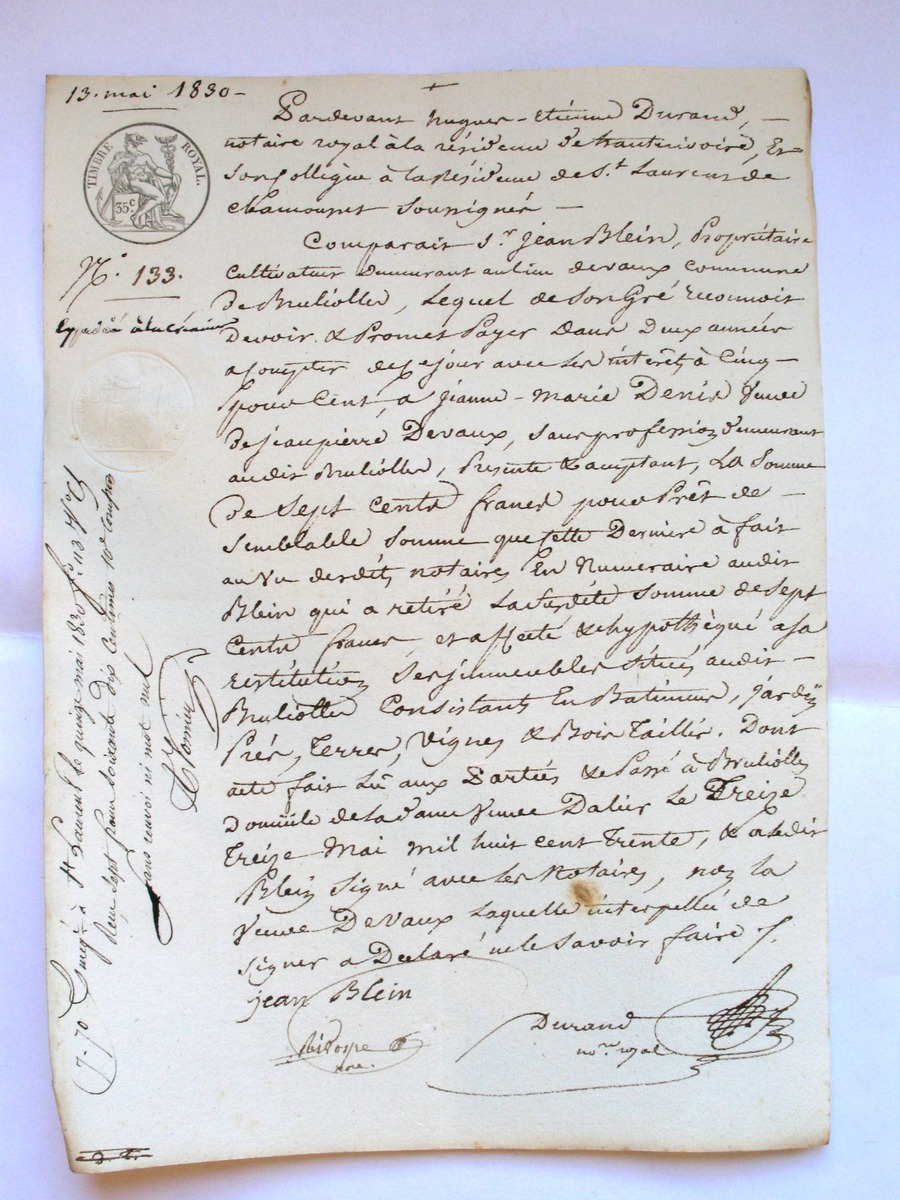 13. mai 1830 -
TIMBRE ROYAL.
35c
N.° 133.
Expédié à la créancière
Pardevant hugues - etiénne Durand, -
notaire royal à la résidence de hauterivoire, Et
son collégue à la Résidence de S.t Laurent de
chamousset soussignés -
Comparait S.r jean Blein, Propriétaire
Cultivateur demeurant au lieu devaux commune
de Brulliolles, Lequel de Son Gré reconnoit
Devoir & Promet Payer Dans Deux années
a compter de ce jour avec les interêt à Cinq -
pour Cent, a jeanne - marie Denis Veuve
de jeanpierre Devaux, Sans profession demeurant
audit Brulliolles, Présente & acceptant, La Somme
De Sept Cents francs pour Prêt de -
Semblable Somme que cette Dernière à fait
au Vu desdits notaires En Numeraire audit
Blein qui a retiré Laditte Somme de Sept
Cents francs, et affecté & hypothèqué a sa
restitution Ses immeubles Situés audit -
Brulliolles Consistants En Batiments, jardin
Près, Terres, Vignes & Bois Taillis. Dont
acte fait Lû aux Partiés & Passé à Brulliolles
Domicile de la dame Veuve Dalier Le Treize
Treize Mai mil huit cent Trente, & a ledit
Blein Signé avec les Notaires, non la
Veuve Devaux Laquelle interpellée de
Signer a Declaré ne le Savoir faire /.
jean Blein
Durand
no.re royal
nore.
Enreg.é à St Laurent le quinze mai 1830 f.° 113
Reçu sept francs soixante dix centimes 10e Compris
Sans renvoi ni mot nul
7-70